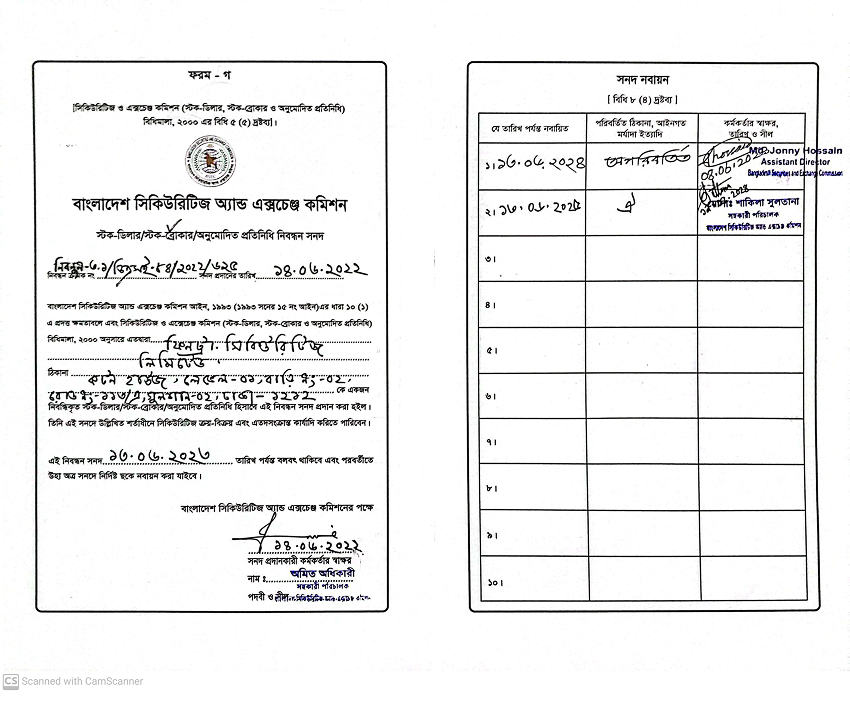 ফরম - গ
[সিকিউরিটিজ ও এক্সচেঞ্জ কমিশন (স্টক-ডিলার, স্টক-ব্রোকার ও অনুমোদিত প্রতিনিধি)
বিধিমালা, ২০০০ এর বিধি ৫ (৫) দ্রষ্টব্য]।
বাংলাদেশ সিকিউরিটিজ অ্যান্ড এক্সচেঞ্জ কমিশন
স্টক-ডিলার/স্টক-ব্রোকার/অনুমোদিত প্রতিনিধি নিবন্ধন সনদ
নিবন্ধন ক্রমিক নং সনদ প্রদানের তারিখ ১৪.০৬.২০২২
বাংলাদেশ সিকিউরিটিজ অ্যান্ড এক্সচেঞ্জ কমিশন আইন, ১৯৯৩ (১৯৯৩ সনের ১৫ নং আইন)এর ধারা ১০ (১)
এ প্রদত্ত ক্ষমতাবলে এবং সিকিউরিটিজ ও এক্সেচেঞ্জ কমিশন (স্টক-ডিলার, স্টক-ব্রোকার ও অনুমোদিত প্রতিনিধি)
বিধিমালা, ২০০০ অনুসারে এতদ্বারা সিকিউরিটিজ
লিমিটেড
ঠিকানা লেভেল-০১, বাড়ি নং-০২,
রোড নং-১১৩/এ, গুলশান-০২, ঢাকা-১২১২ কে একজন
নিবন্ধিকৃত স্টক-ডিলার/স্টক-ব্রোকার/অনুমোদিত প্রতিনিধি হিসাবে এই নিবন্ধন সনদ প্রদান করা হইল।
তিনি এই সনদে উল্লিখিত শর্তাধীনে সিকিউরিটিজ ক্রয়-বিক্রয় এবং এতদসংক্রান্ত কার্যাদি করিতে পারিবেন।
এই নিবন্ধন সনদ ১৩.০৬.২০২৩ তারিখ পর্যন্ত বলবৎ থাকিবে এবং পরবর্তীতে
উহা অত্র সনদে নির্দিষ্ট ছকে নবায়ন করা যাইবে।
বাংলাদেশ সিকিউরিটিজ অ্যান্ড এক্সচেঞ্জ কমিশনের পক্ষে
১৪.০৬.২০২২
সনদ প্রদানকারী কর্মকর্তার স্বাক্ষর
নাম ঃ অমিত অধিকারী
সহকারী পরিচালক
পদবী ও সীল
সনদ নবায়ন
[ বিধি ৮ (৪) দ্রষ্টব্য ]
যে তারিখ পর্যন্ত নবায়িত
পরিবর্তিত ঠিকানা, আইনগত
মর্যাদা ইত্যাদি
কর্মকর্তার স্বাক্ষর,
তারিখ ও সীল
১। ১৩.০৬.২০২৪
অপরিবর্তিত
Md. Jonny Hossain
Assistant Director
Bangladesh Securities and Exchange Commission
২। ১৩.০৬.২০২৫
ঐ
শাকিলা সুলতানা
সহকারী পরিচালক
বাংলাদেশ সিকিউরিটিজ অ্যান্ড এক্সচেঞ্জ কমিশন
৩।
৪।
৫।
৬।
৭।
৮।
৯।
১০।
CS Scanned with CamScanner